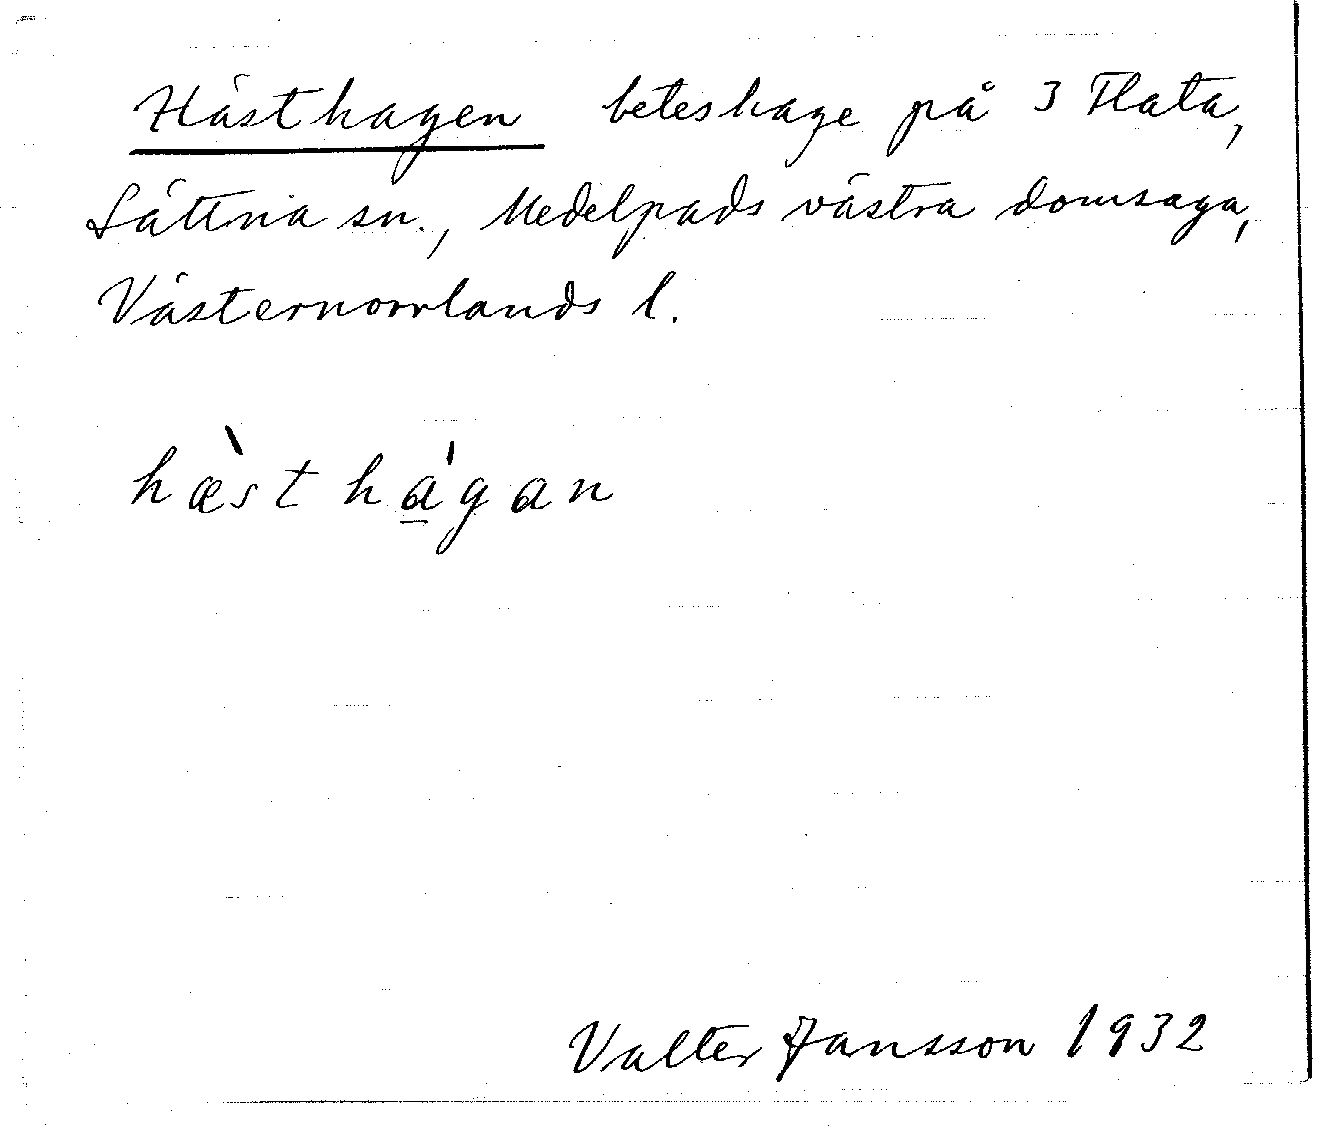 Hästhagen beteshage på 3 Flata,
Sättna sn., Medelpads västra domsaga,
Västernorrlands l.
hæ̀st hа̱́gan
Valter Jansson 1932